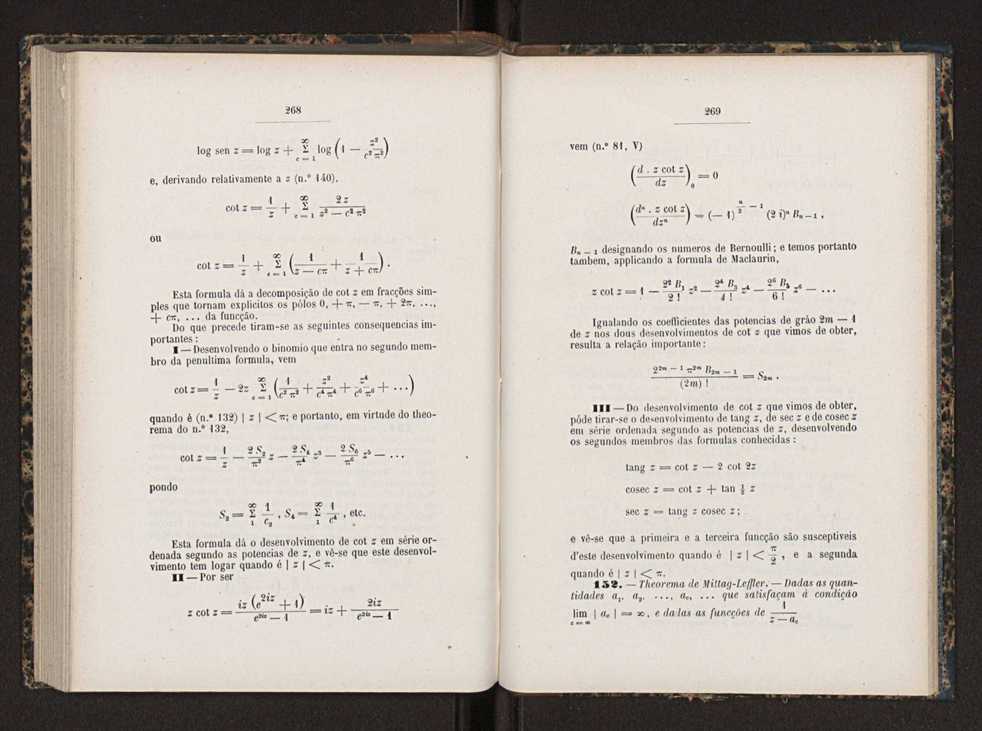 268
log sen z = log z + Σ_{c=1}^{∞} log (1 − z²/(c²π²))
e, derivando relativamente a z (n.º 140),
cot z = 1/z + Σ_{c=1}^{∞} 2z/(z² − c²π²)
ou
cot z = 1/z + Σ_{c=1}^{∞} (1/(z − cπ) + 1/(z + cπ)).
Esta formula dá a decomposição de cot z em fracções sim-
ples que tornam explicitos os pólos 0, + π, — π, + 2π, ...,
+ cπ, ... da funcção.
Do que precede tiram-se as seguintes consequencias im-
portantes :
I — Desenvolvendo o binomio que entra no segundo mem-
bro da penultima formula, vem
cot z = 1/z − 2z Σ_{c=1}^{∞} (1/(c²π²) + z²/(c⁴π⁴) + z⁴/(c⁶π⁶) + ...)
quando é (n.º 132) | z | < π; e portanto, em virtude do theo-
rema do n.º 132,
cot z = 1/z − (2 S₂/π²) z − (2 S₄/π⁴) z³ − (2 S₆/π⁶) z⁵ − ...
pondo
S₂ = Σ_{1}^{∞} 1/c₂ , S₄ = Σ_{1}^{∞} 1/c⁴ , etc.
Esta formula dá o desenvolvimento de cot z em série or-
denada segundo as potencias de z, e vê-se que este desenvol-
vimento tem logar quando é | z | < π.
II — Por ser
z cot z = iz (e^{2iz} + 1)/(e^{2iz} − 1) = iz + 2iz/(e^{2iz} − 1)
269
vem (n.º 81, V)
(d . z cot z/dz)₀ = 0
(dⁿ . z cot z/dzⁿ) = (− 1)^{n/2 − 1} (2 i)ⁿ B_{n−1} ,
B_{n−1} designando os numeros de Bernoulli ; e temos portanto
tambem, applicando a formula de Maclaurin,
z cot z = 1 − (2² B₁/2 !) z² − (2⁴ B₃/4 !) z⁴ − (2⁶ B₅/6 !) z⁶ − ...
Igualando os coefficientes das potencias de gráo 2m — 1
de z nos dous desenvolvimentos de cot z que vimos de obter,
resulta a relação importante :
2^{2m − 1} π^{2m} B_{2m − 1}/(2m) ! = S_{2m} .
III — Do desenvolvimento de cot z que vimos de obter,
póde tirar-se o desenvolvimento de tang z, de sec z e de cosec z
em série ordenada segundo as potencias de z, desenvolvendo
os segundos membros das formulas conhecidas :
tang z = cot z — 2 cot 2z
cosec z = cot z + tan ½ z
sec z = tang z cosec z ;
e vê-se que a primeira e a terceira funcção são susceptiveis
d'este desenvolvimento quando é | z | < π/2 , e a segunda
quando é | z | < π.
152. — Theorema de Mittag-Leffler. — Dadas as quan-
tidades a₁, a₂, ..., a_c, ... que satisfaçam á condição
lim_{c=∞} | a_c | = ∞, e dadas as funcções de 1/(z — a_c)